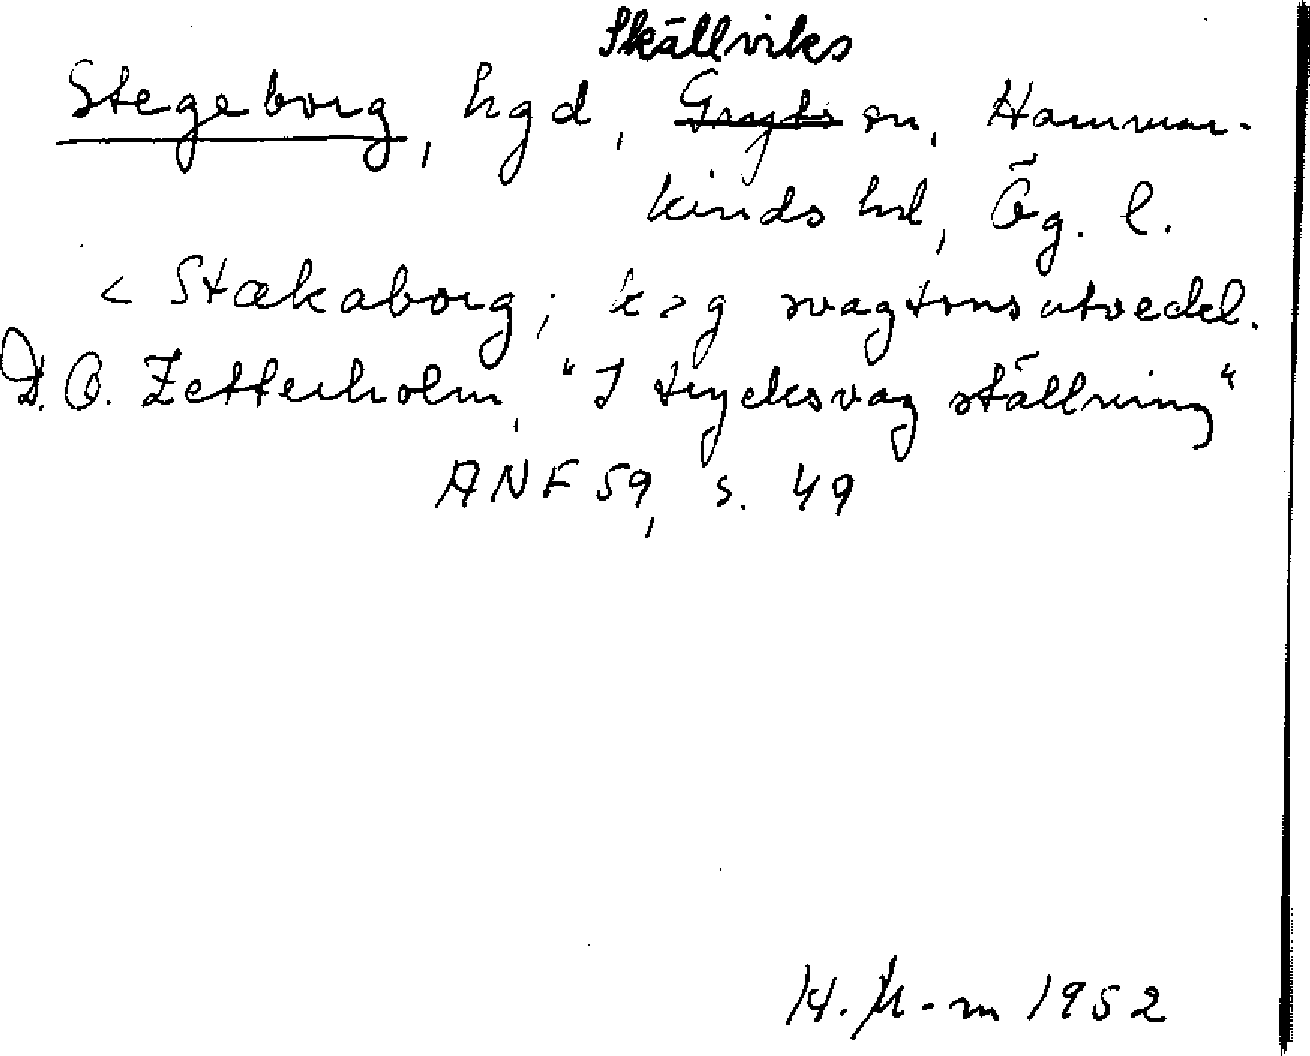 Skällviks
Stegeborg, hgd, Gryts sn, Hammar-
kinds hd, Ög. l.
< Stækaborg; k > g svagtonsutveckl.
D. O. Zetterholm, "I trycksvag ställning"
ANF 59, s. 49
H. M-m 1952